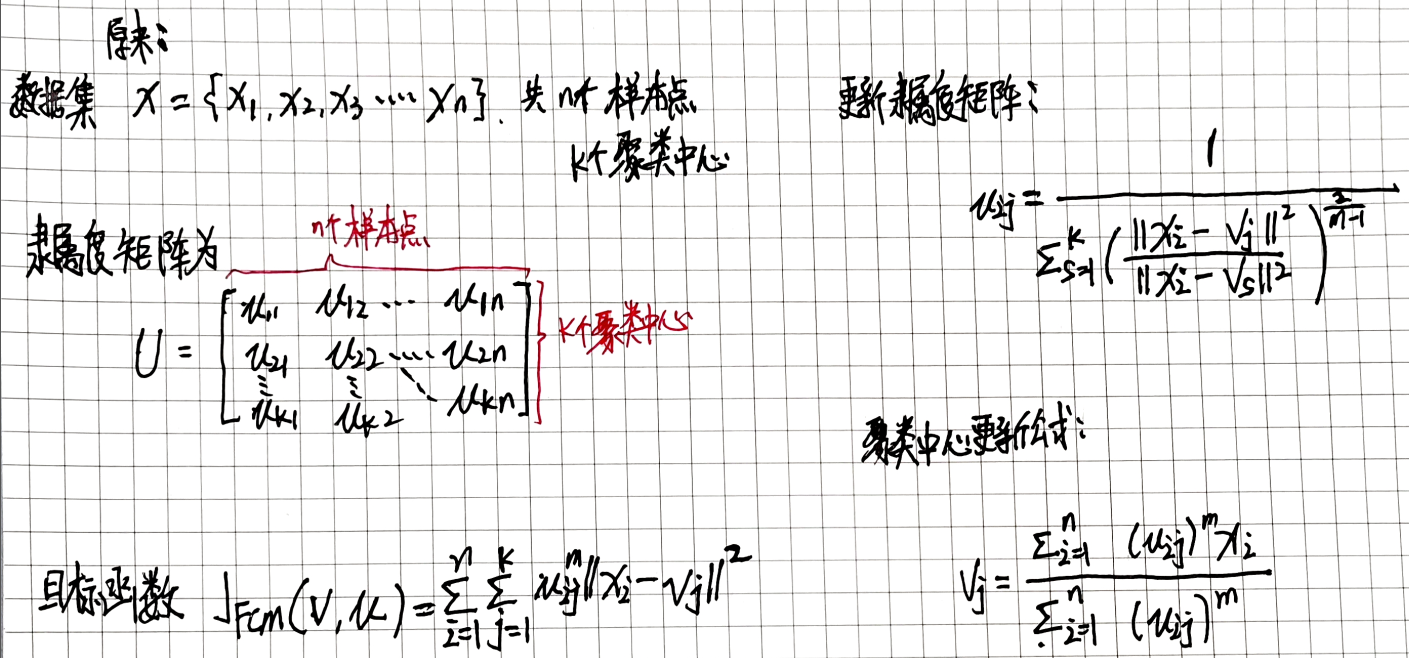 原来：
数据集 X = {x₁, x₂, x₃ ···· xₙ}. 共 n个 样本点
k个聚类中心
隶属度矩阵为
n个样本点
U = [u₁₁ u₁₂ ··· u₁ₙ
u₂₁ u₂₂ ····· u₂ₙ
⋮ ⋮ ⋱
uₖ₁ uₖ₂ uₖₙ]
k个聚类中心
目标函数 J_FCM(V, u) = ∑_{i=1}^{n} ∑_{j=1}^{k} u_{ij}^{m} ||x_i − v_j||²
更新隶属度矩阵：
u_{ij} = 1 / ∑_{s=1}^{k} ( ||x_i − v_j||² / ||x_i − v_s||² )^{2/(m−1)}
聚类中心更新公式：
v_j = ∑_{i=1}^{n} (u_{ij})^m x_i / ∑_{i=1}^{n} (u_{ij})^m